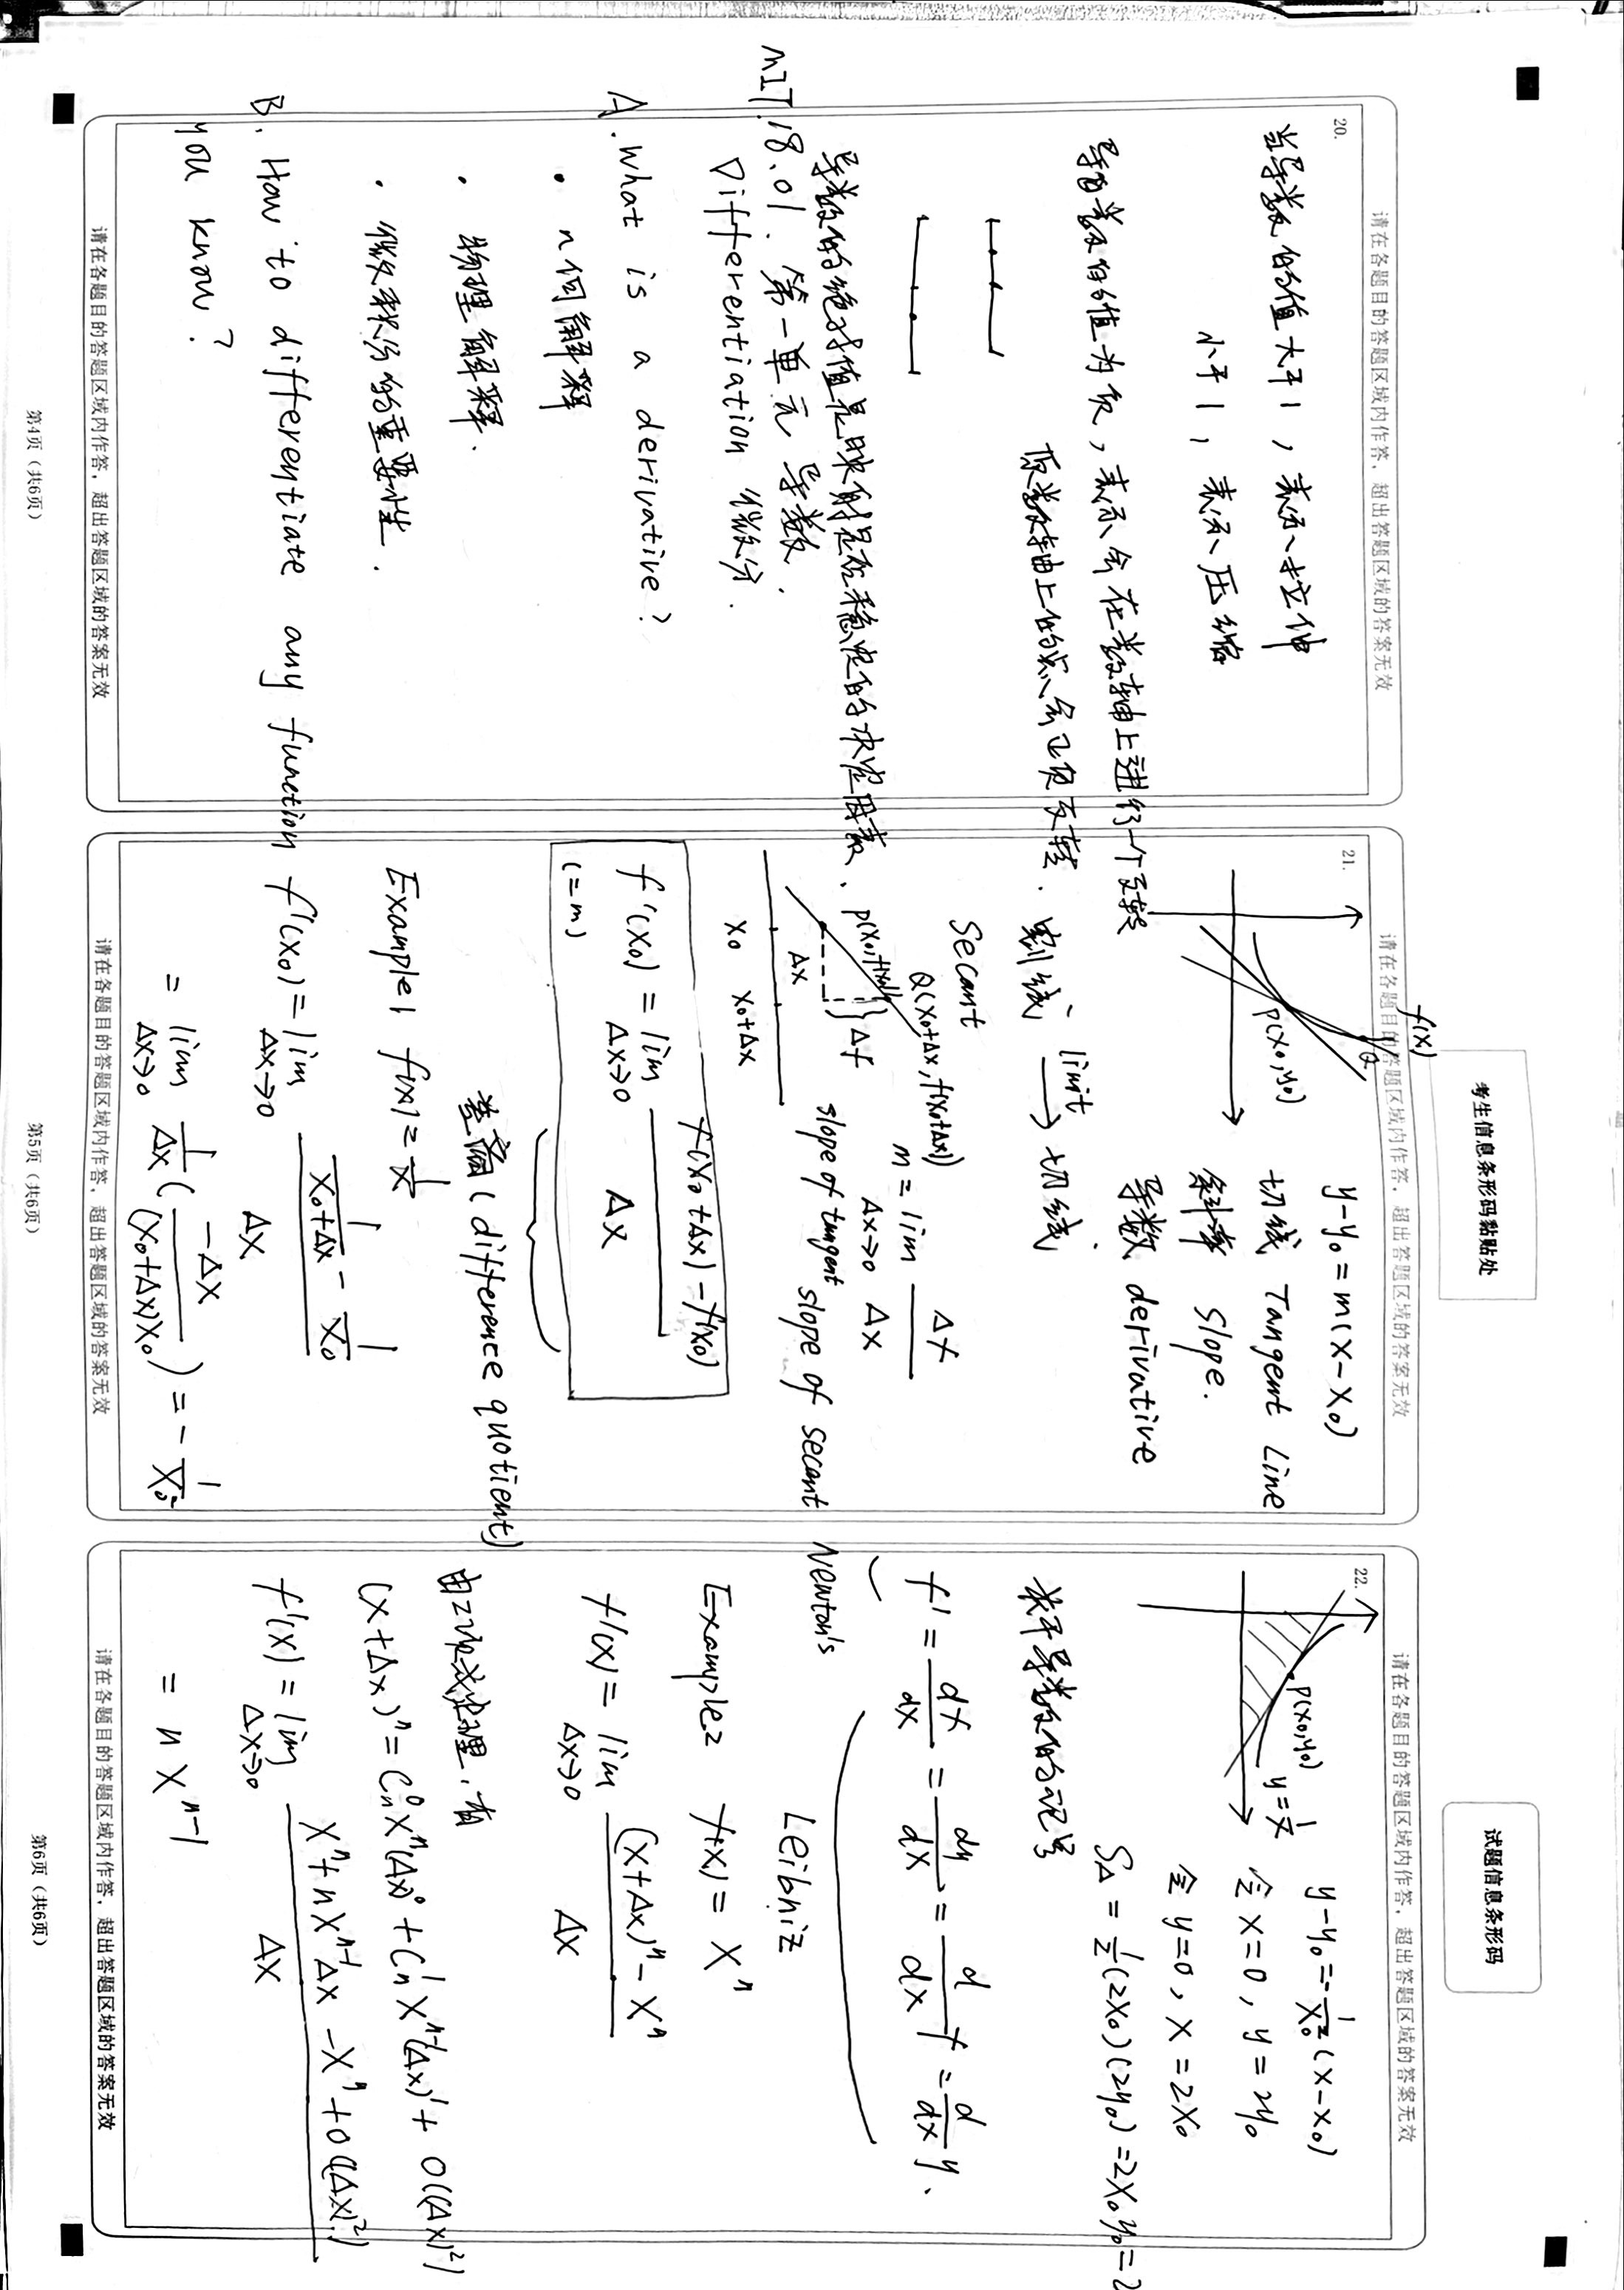 考生信息条形码黏贴处
试题信息条形码
20.
请在各题目的答题区域内作答，超出答题区域的答案无效
当导数的值大于1，表示拉伸
小于1，表示压缩
导函数的值为负，表示会在数轴上进行一个反转
原数轴上的点会正负反转.
导数的绝对值是映射是否稳定的决定因素.
MIT.18.01. 第一单元 导数.
Differentiation 微分.
A. what is a derivative?
· 几何解释
· 物理解释.
· 微积分的重要性.
B. How to differentiate any function
you know?
请在各题目的答题区域内作答，超出答题区域的答案无效
第4页（共6页）
21.
请在各题目的答题区域内作答，超出答题区域的答案无效
f(x)
Q
P(x₀,y₀)
y-y₀=m(x-x₀)
切线 Tangent Line
斜率 slope.
导数 derivative
割线 limit → 切线.
Secant
Q(x₀+Δx,f(x₀+Δx))
P(x₀,f(x₀))
}Δf
Δx
x₀ x₀+Δx
m = lim Δx→0 Δf/Δx
slope of tangent slope of secant
f'(x₀) = lim Δx→0 (f(x₀+Δx)-f(x₀))/Δx
(=m)
差商(difference quotient)
Example1 f(x)=1/x
f'(x₀)=lim Δx→0 (1/(x₀+Δx) - 1/x₀)/Δx
= lim Δx→0 1/Δx (-Δx/((x₀+Δx)x₀)) = - 1/x₀²
请在各题目的答题区域内作答，超出答题区域的答案无效
第5页（共6页）
22.
请在各题目的答题区域内作答，超出答题区域的答案无效
P(x₀,y₀)
y=1/x
y-y₀=-1/x₀²(x-x₀)
令x=0, y=2y₀
令y=0, x=2x₀
S△=1/2(2x₀)(2y₀)=2x₀y₀=2
关于导数的记号
f' = df/dx = dy/dx = d/dx f = d/dx y.
Newton's
Leibniz
Example2 f(x)=xⁿ
f'(x)= lim Δx→0 ((x+Δx)ⁿ-xⁿ)/Δx
由二项式定理,有
(x+Δx)ⁿ=Cₙ⁰xⁿ(Δx)⁰+Cₙ¹xⁿ⁻¹(Δx)¹+O((Δx)²)
f'(x)=lim Δx→0 (xⁿ+nxⁿ⁻¹Δx-xⁿ+O((Δx)²))/Δx
= nxⁿ⁻¹
请在各题目的答题区域内作答，超出答题区域的答案无效
第6页（共6页）